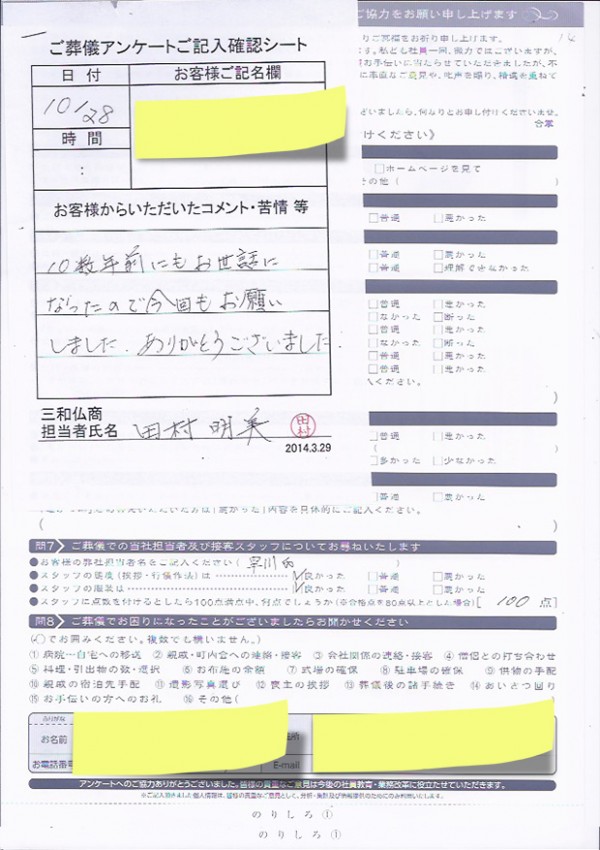 ご協力をお願い申し上げます
ご葬儀アンケートご記入確認シート
日付
お客様ご記名欄
10/28
時間
:
お客様からいただいたコメント・苦情 等
10数年前にもお世話に
なったので今回もお願い
しました. ありがとうございました
三和仏商
担当者氏名 田村 明美
田村
2014.3.29
りご冥福をお祈り申し上げます。
す。私ども社員一同、微力ではございますが、
お手伝いに当たらせていただきましたが、不
に率直なご意見や、叱声を賜り、精進を重ねて
ざいましたら、何なりとお申し付けくださいませ。
合掌
けください》
□ホームページを見て
その他(
□普通 □悪かった
□普通 □悪かった
□普通 □理解できなかった
□普通 □悪かった
□なかった □断った
□普通 □悪かった
□なかった □断った
□普通 □悪かった
□普通 □悪かった
ください。
□普通 □悪かった
□多かった □少なかった
□普通 □悪かった
(
問7 ご葬儀での当社担当者及び接客スタッフについてお尋ねいたします
●お客様の弊社担当者名をご記入ください( 早川 )
●スタッフの態度(挨拶・行儀作法)は □良かった □普通 □悪かった
●スタッフの服装は □良かった □普通 □悪かった
●スタッフに点数を付けるとしたら100点満点中、何点でしょうか(※合格点を80点以上とした場合)[ 100 点]
問8 ご葬儀でお困りになったことがございましたらお聞かせください
(○でお囲みください。複数でも構いません。)
①病院ー自宅への移送 ②親戚・町内会への連絡・接客 ③会社関係の連絡・接客 ④僧侶との打ち合わせ
⑤料理・引出物の数・選択 ⑥お布施の金額 ⑦式場の確保 ⑧駐車場の確保 ⑨供物の手配
⑩親戚の宿泊先手配 ⑪遺影写真選び ⑫喪主の挨拶 ⑬葬儀後の諸手続き ⑭あいさつ回り
⑮お手伝いの方へのお礼 ⑯その他(
ふりがな
お名前
お電話番号
E-mail
アンケートへのご協力ありがとうございました。皆様の貴重なご意見は今後の社員教育・業務改革に役立たせていただきます。
のりしろ①
のりしろ①